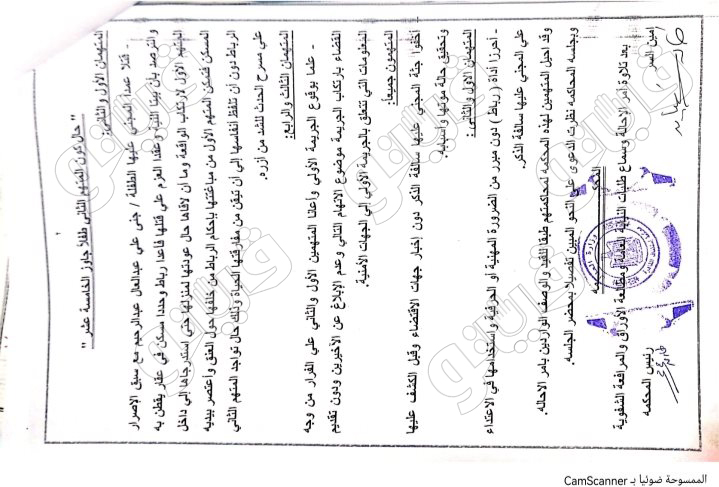 " حال كون المتهم الثاني طفلاً جاوز الخامسة عشر "
المتهمان الأول والثاني:
- قتلا عمداً المجني عليها الطفلة / جنى علي عبدالعال عبدالرحيم مع سبق الإصرار
والترصد بأن بيتا النية وعقدا العزم على قتلها فأعدا رباط وحددا مسكن في عقار يقطن به
المتهم الأول لارتكاب الواقعة وما أن لاقاها حال عودتها لمنزلها حتى استدرجاها إلى داخل
المسكن فتمكن المتهم الأول من مباغتتها بإحكام الرباط من خلفها حول العنق وأعتصر بيديه
الرباط دون أن تلفظ أنفاسها إلى أن تيقن من مفارقتها الحياة وذلك حال تواجد المتهم الثاني
على مسرح الحدث للشد من أزره.
المتهمان الثالث والرابع:
- علما بوقوع الجريمة الأولى وأعانا المتهمين الأول والثاني على الفرار من وجه
القضاء بارتكاب الجريمة موضوع الاتهام التالي وعدم الإبلاغ عن الأخيرين ودون تقديم
المعلومات التي تتعلق بالجريمة الأولى إلى الجهات الأمنية.
المتهمون جميعاً:
أخفوا جثة المجني عليها سالفة الذكر دون إخبار جهات الاقتضاء وقبل الكشف عليها
وتحقيق حالة موتها وأسبابه.
المتهمان الأول والثاني:
- أحرزا أداة ( رباط ) دون مبرر من الضرورة المهنية أو الحرفية واستخدامها في الاعتداء
على المجني عليها سالفة الذكر.
وقد احيل المتهمين لهذه المحكمه لمحاكمتهم طبقا للقيد والوصف الواردين بأمر الاحاله.
وبجلسه المحاكمه نظرت الدعوى على النحو المبين تفصيلا بمحضر الجلسه.
المحكمه
بعد تلاوة أمر الإحالة وسماع طلبات النيابة العامة ومطالعة الأوراق والمرافعة الشفوية
أمين السر
رئيس المحكمه
فيتو
الممسوحة ضوئيا بـ CamScanner